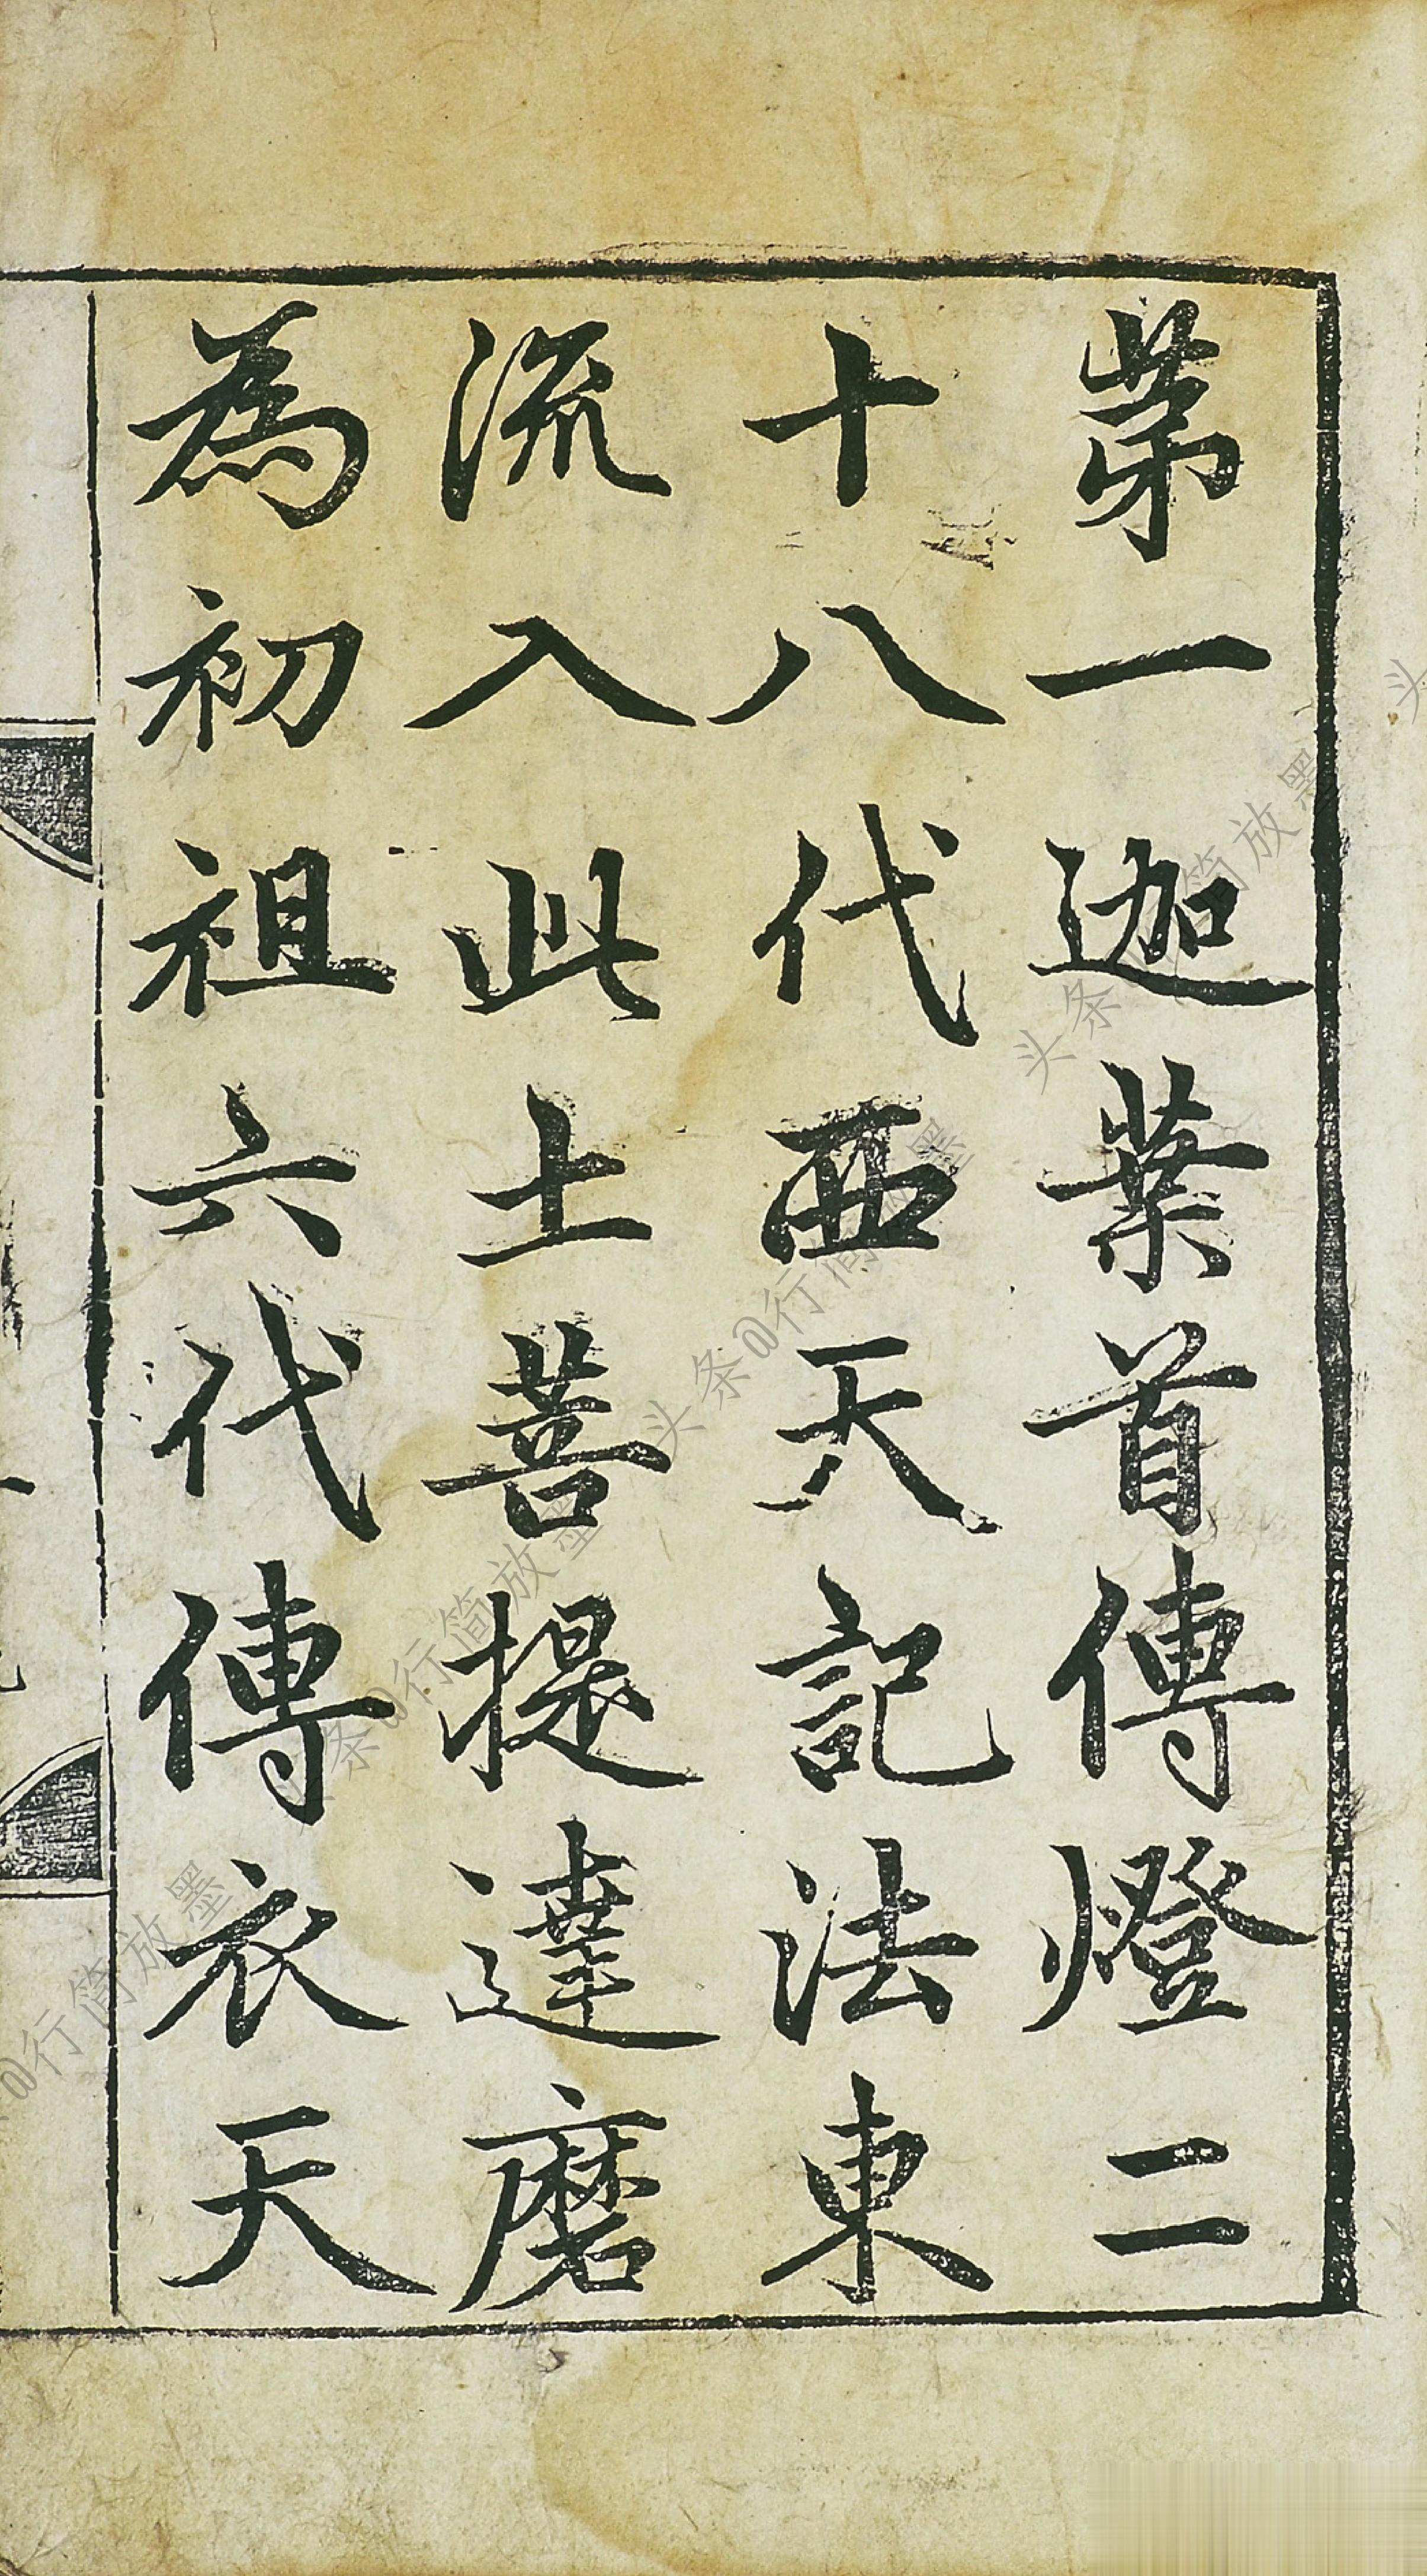 苐一迦葉首傳燈二
十八代西天記法東
流入此土菩提達磨
為初祖六代傳衣天
头条@行简放墨
头条@行简放墨
头条@行简放墨
@行简放墨
头